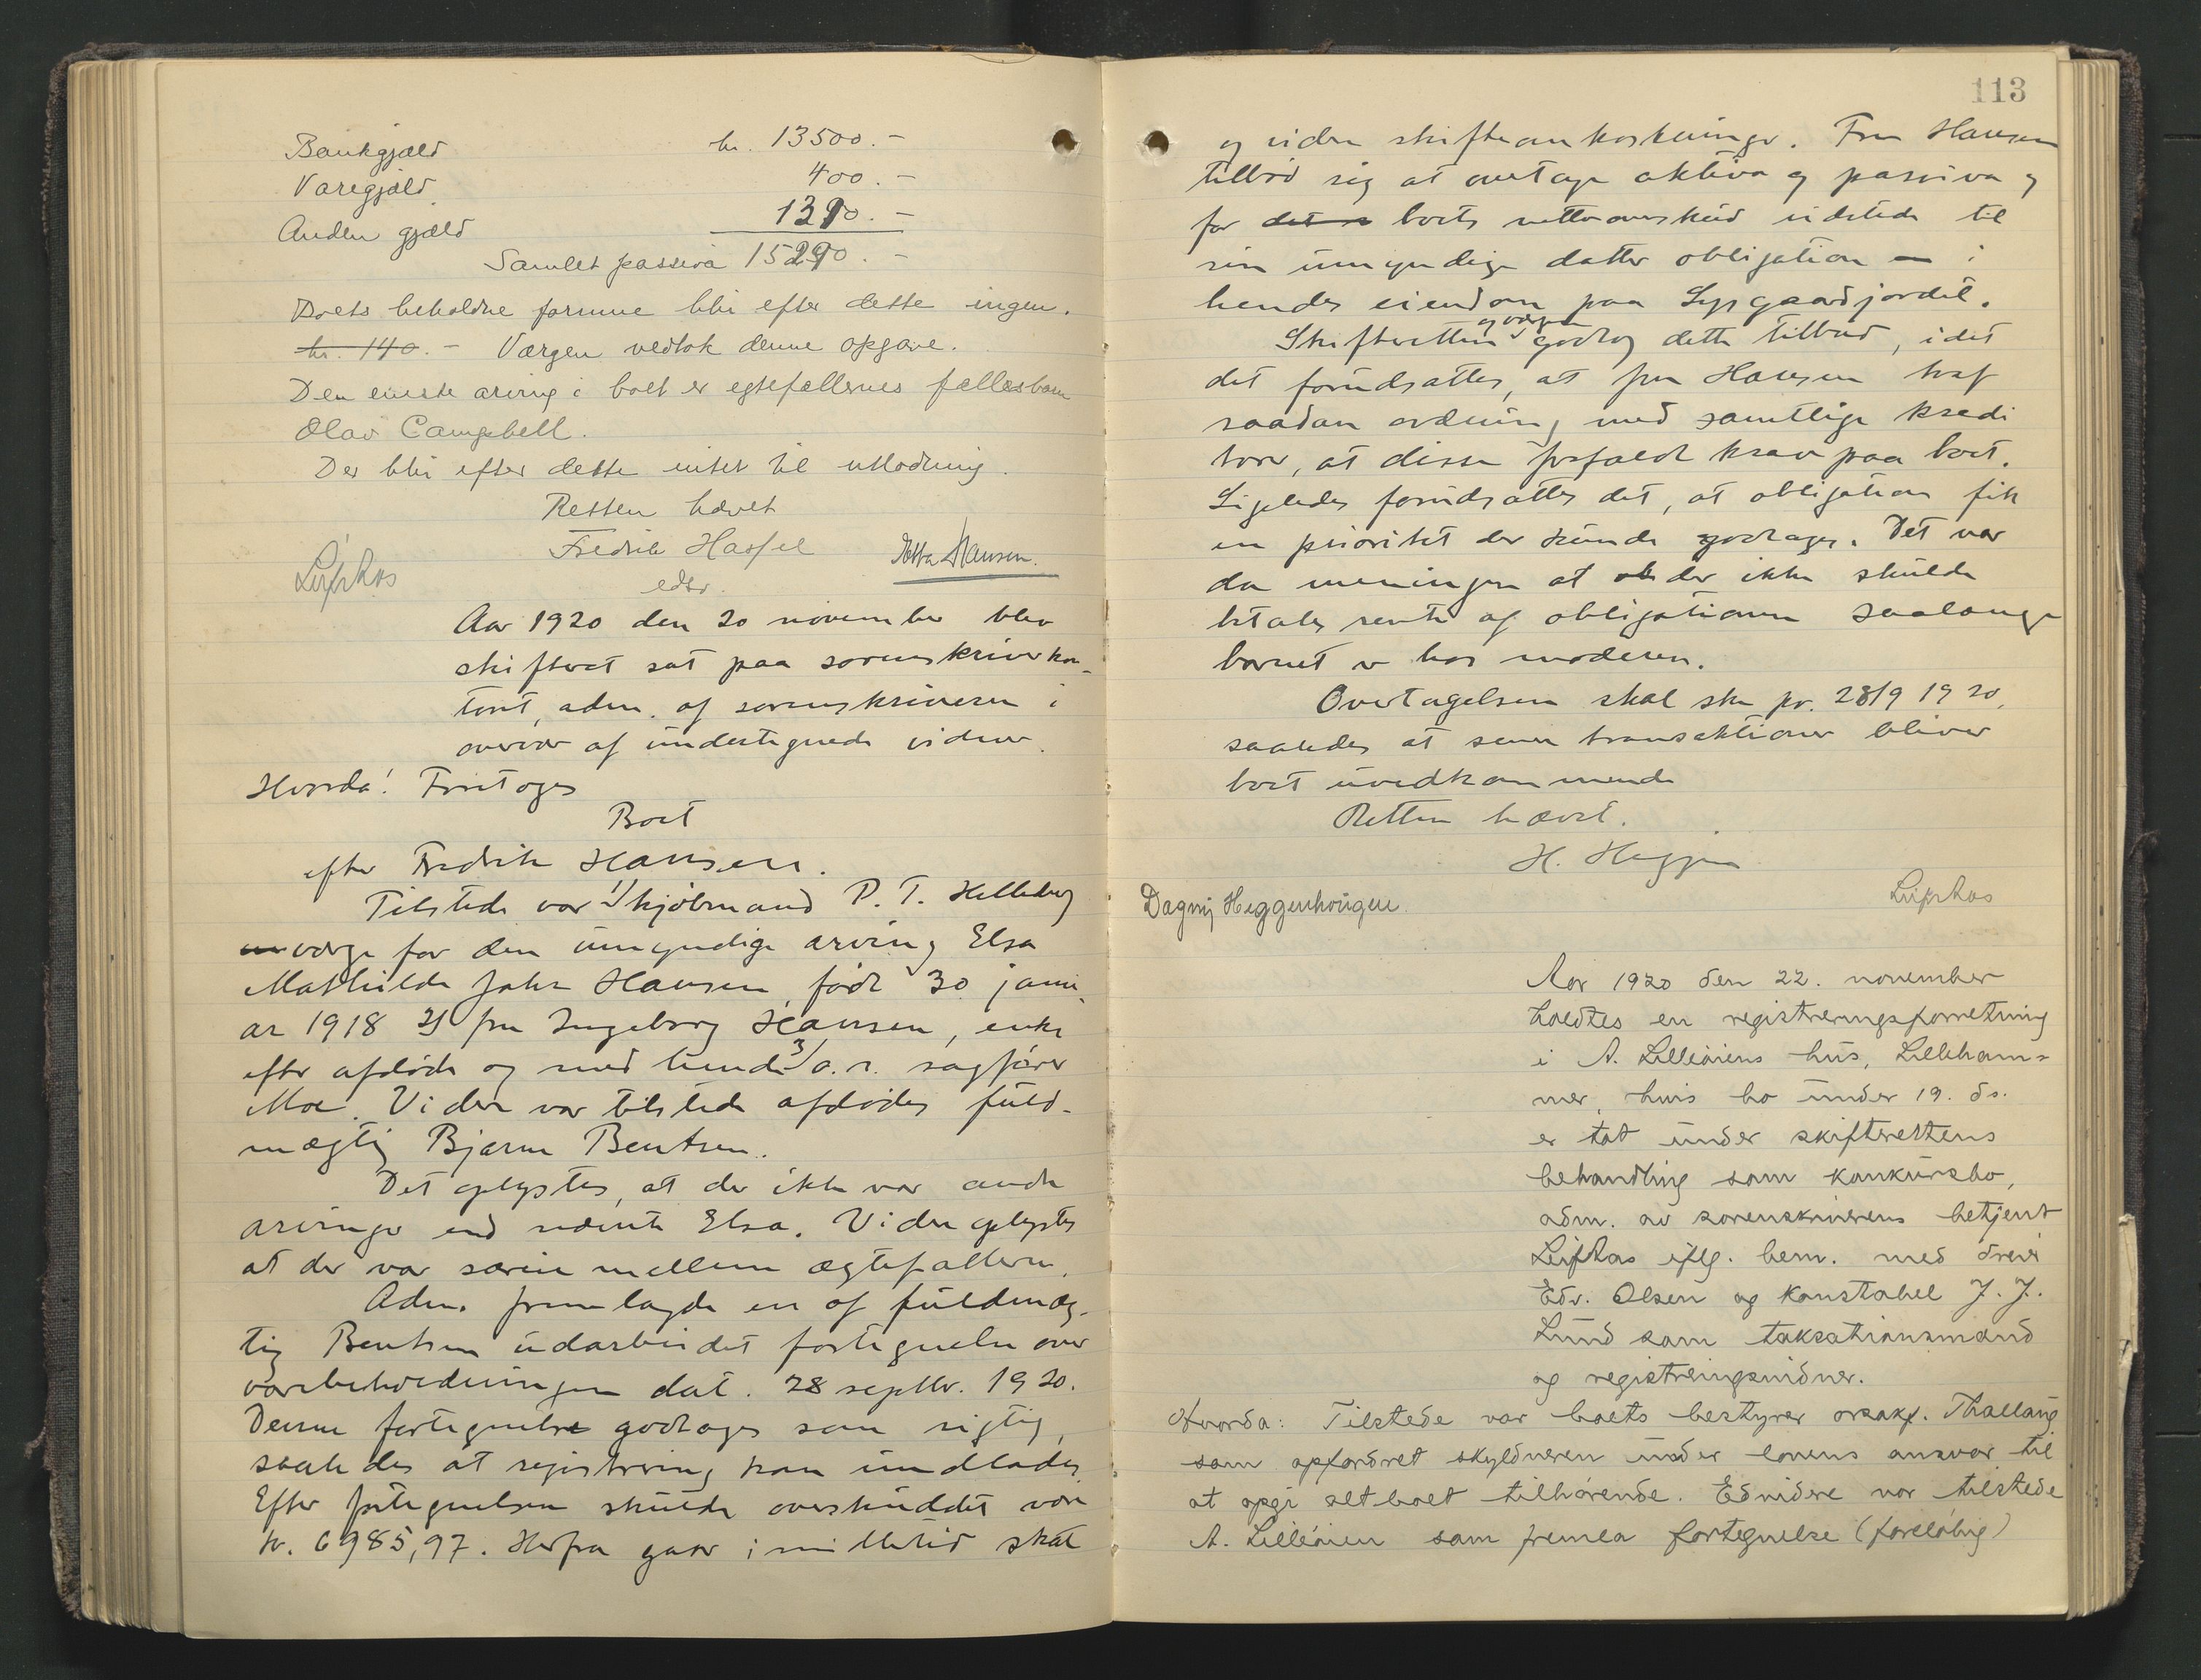 Bankgjæld kr. 13500.-
Varegjæld 400.-
Anden gjæld 1390.-
Samlet passiva 15290.-
Boets beholdne formue blir efter dette ingen.
kr. 140.- Værgen vedtok denne opgave.
Den eneste arving i boet er egtefællernes fællesbarn
Olav Campbell.
Der blir efter dette intet til utlodning.
Retten hævet
Fredrik Hassel
edsv.
Hansen.
Leif Aas
Aar 1920 den 20 november blev
skifteret sat paa sorenskriverkon-
toret, adm. af sorenskriveren i
overvær af undertegnede vidner.
Hvorda! Foretoges
Boet
efter Fredrik Hansen.
Tilstede var 1/ kjøbmand P. T. Helleberg
værge for den umyndige arving Elsa
Mathilde Hansen, født 30 janu-
ar 1918 2/ fru Ingeborg Hansen, enke
efter afdøde og med hende 3/ o.r. sagfører
Moe. Videre var tilstede afdødes fuld-
mægtig Bjarne Bentsen.
Det oplystes, at der ikke var andre
arvinger end nævnte Elsa. Videre oplystes
at der var særeie mellem ægtefællerne.
Adm. fremlagde en af fuldmæg-
tig Bentsen udarbeidet fortegnelse over
varebeholdningen dat. 28 septbr. 1920.
Denne fortegnelse godtages som rigtig,
saaledes at registrering kan undlades.
Efter fortegnelsen skulde overskuddet være
kr. 6985,97. Herfra gaar imidlertid skat
113
og videre skifteomkostninger. Fru Hansen
tilbød sig at overtage aktiva og passiva og
for det boets nettooverskud udstede til
sin umyndige datter obligation i
hendes eiendom paa Lysgaardjordet.
Skifteretten og værgen godtog dette tilbud, idet
det forudsattes, at fru Hansen traf
saadan ordning med samtlige kredi
torer, at disse frafaldt krav paa boet.
Ligeledes forudsattes det, at obligation fik
en prioritet der kunde godtages. Det var
da meningen at der ikke skulde
betales rente af obligationen saalænge
barnet er hos moderen.
Overtagelsen skal ske pr. 28/9 1920,
saaledes at senere transaktioner bliver
boet uvedkommende
Retten hævet.
H. Heggen
Dagny Heggenhougen.
Leif Aas
Aar 1920 den 22. november
holdtes en registreringsforretning
i A. Lilleøiens hus, Lilleham-
mer, hvis bo under 19. ds.
er tat under skifterettens
behandling som konkursbo,
adm. av sorenskriverens betjent
Leif Aas iflg. bem. med
Edv. Olsen og konstabel J. J.
Lund som taksationsmænd
og registreringsvidner.
Hvorda: Tilstede var boets bestyrer orsakf. Thallaug
som opfordret skyldneren under lovens ansvar til
at opgi alt boet tilhørende. Edvidere var tilstede
A. Lilleøien som fremla fortegnelse (foreløbig)